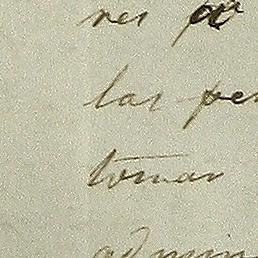 res
las pe
tomar
admin